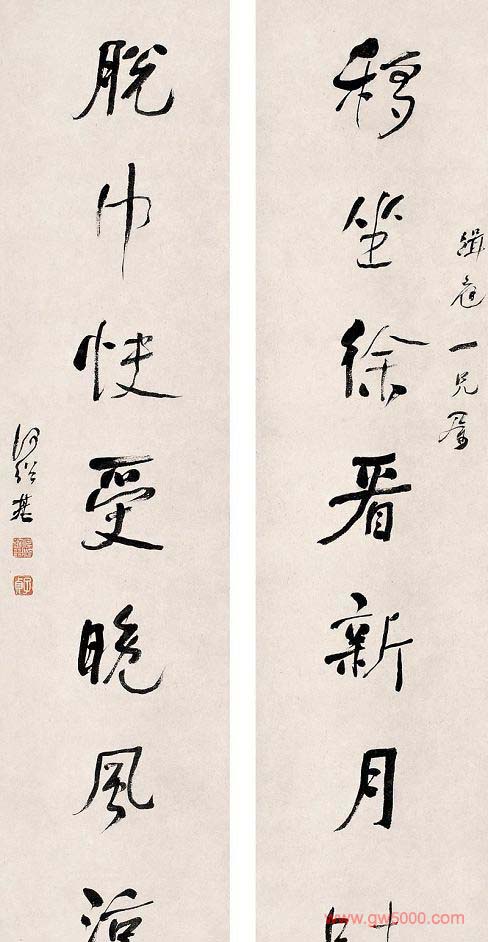 緝庵一兄屬
移坐徐看新月
脫巾快受晚風
何紹基
子貞
www.gw5000.com